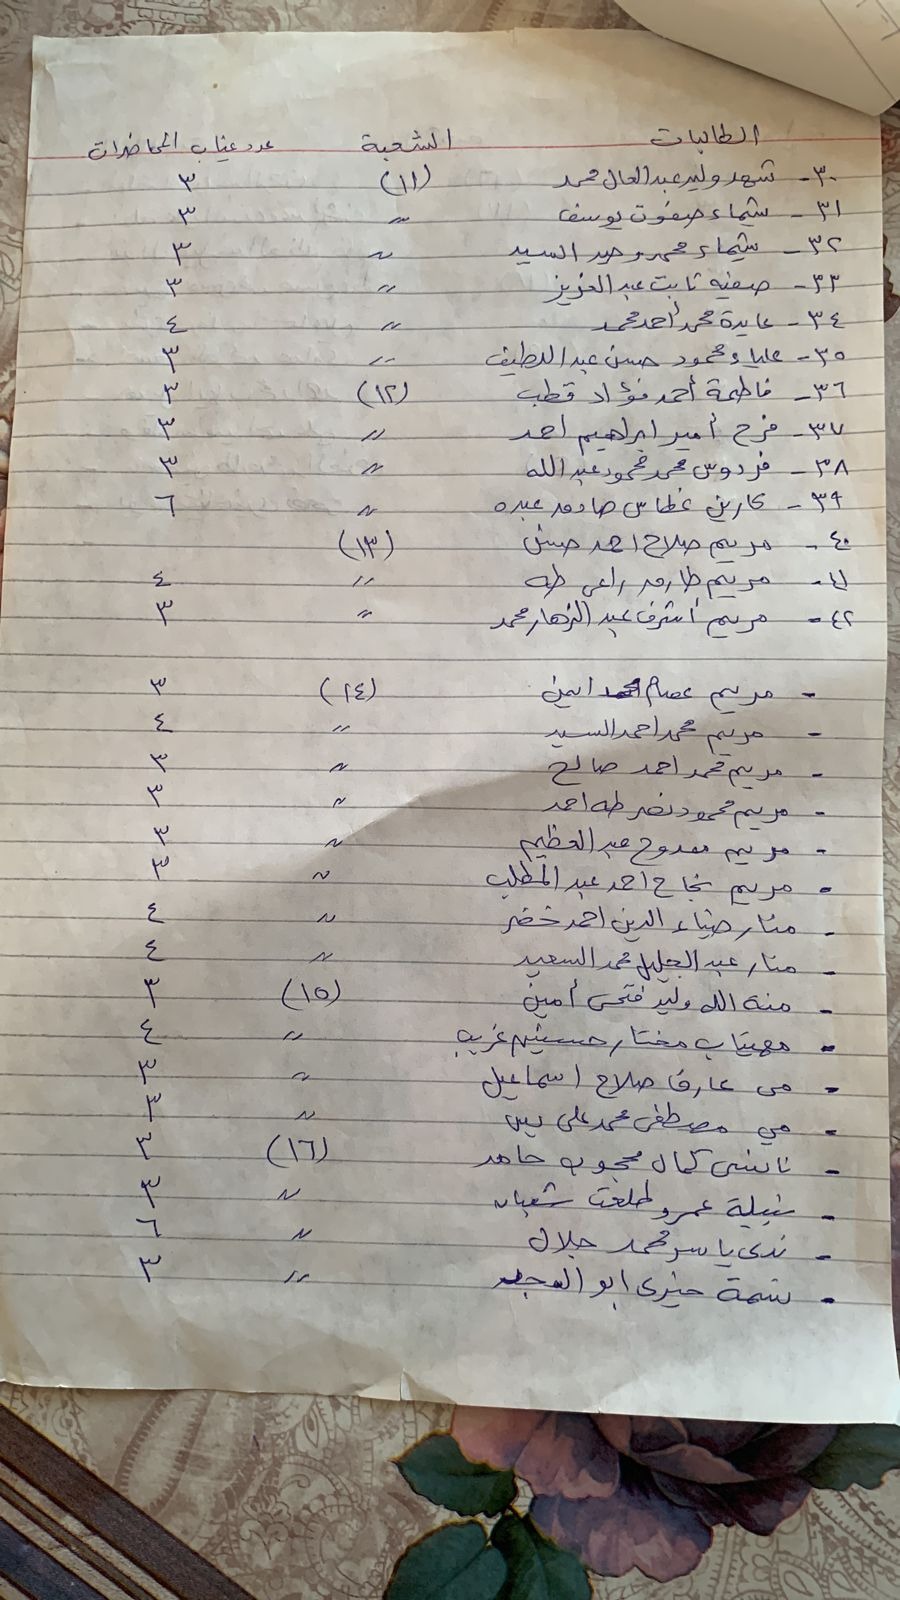 الطالبات الشعبة عدد غياب المحاضرات
٣٠- شهد وليد عبد العال محمد (١١) ٣
٣١- شيماء صفوت يوسف 〃 ٣
٣٢- شيماء محمد وحيد السيد 〃 ٣
٣٣- صفيه ثابت عبد العزيز 〃 ٣
٣٤- عايدة محمد أحمد محمد 〃 ٤
٣٥- علياء محمود حسن عبد اللطيف 〃 ٣
٣٦- فاطمة أحمد فؤاد قطب (١٢) ٣
٣٧- فرح أمير ابراهيم احمد 〃 ٣
٣٨- فردوس محمد محمود عبد الله 〃 ٣
٣٩- كارين غطاس صادق عبده 〃 ٦
٤٠- مريم صلاح احمد حسن (١٣)
٤١- مريم طارق راعى طه 〃 ٤
٤٢- مريم أشرف عبد محمد 〃 ٣
- مريم عصام محمد امين (١٤) ٣
- مريم محمد احمد السيد 〃 ٤
- مريم محمد احمد صالح 〃 ٣
- مريم محمود نصر طه احمد 〃 ٣
- مريم ممدوح عبد العظيم 〃 ٣
- مريم نجاح احمد عبد المطلب 〃 ٣
- منار ضياء الدين احمد خضر 〃 ٤
- منار عبد الجليل محمد السعيد 〃 ٤
- منة الله وليد فتحى أمين (١٥) ٣
- مهيتاب مختار حسينى غريب 〃 ٤
- مى عارف صلاح اسماعيل 〃 ٣
- مي مصطفى محمد على يس 〃 ٣
- نانسى كمال محجوب حامد (١٦) ٣
- نبيلة عمرو طلعت شعبان 〃 ٣
- ندى ياسر محمد جلال 〃 ٦
- نسمة خيرى ابو المجد 〃 ٣